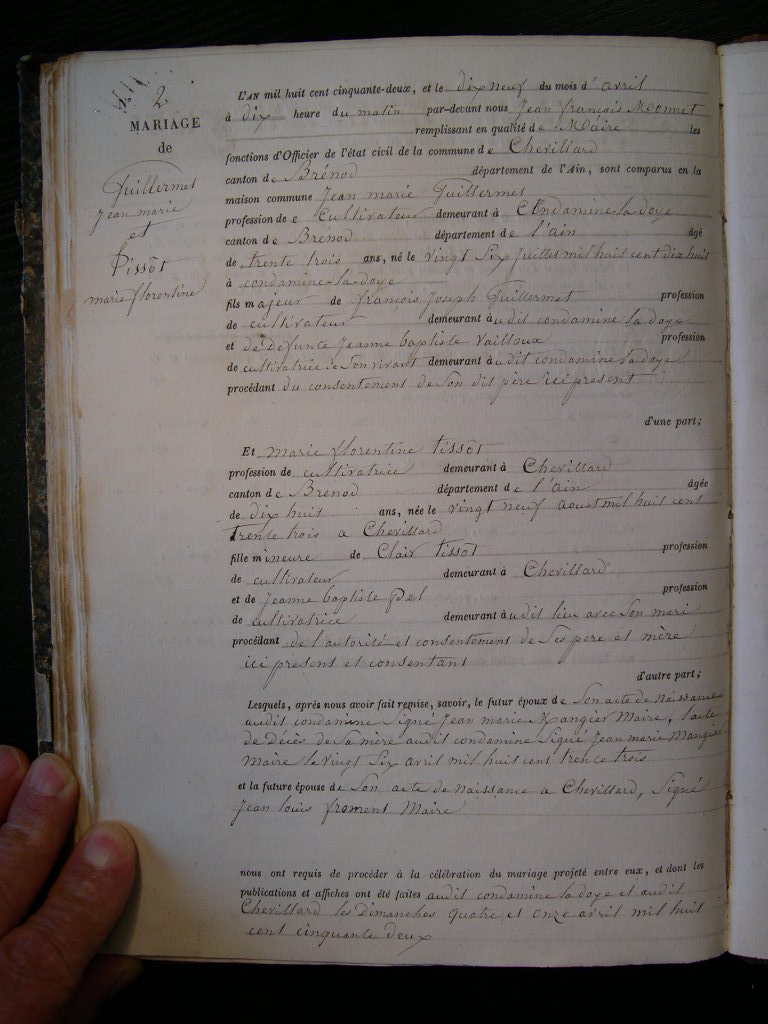 N° 2
MARIAGE
de
Guillermet
jean marie
et
Tissot
marie florentine
L'AN mil huit cent cinquante-deux, et le dix neuf du mois d'avril
à dix heure du matin par-devant nous jean françois Monnet
remplissant en qualité de Maire les
fonctions d'Officier de l'état civil de la commune de Chevillard
canton de Brénod département de l'Ain, sont comparus en la
maison commune Jean marie Guillermet
profession de Cultivateur demeurant à Condamine-la-doye
canton de Brénod département de l'ain âgé
de trente trois ans, né le vingt Six Juillet mil huit cent dix huit
à condamine-la-doye
fils majeur de françois Joseph Guillermet profession
de cultivateur demeurant audit condamine la doye
et de défunte Jeanne baptiste Vailloux profession
de cultivatrice de Son vivant demeurant audit condamine la doye
procédant du consentement de Son dit père ici present
d'une part;
Et marie florentine tissot
profession de cultivatrice demeurant à Chevillard
canton de Brenod département de l'ain âgée
de dix huit ans, née le vingt neuf aoust mil huit cent
trente trois a Chevillard
fille mineure de Clair tissot profession
de cultivateur demeurant à Chevillard
et de Jeanne baptiste profession
de cultivatrice demeurant audit lieu avec Son mari
procédant de l'autorité et consentement de Ses pere et mère
ici present et consentant
d'autre part;
Lesquels, après nous avoir fait remise, savoir, le futur époux de Son acte de Naissance
audit condamine Signé Jean marie Mangier Maire, l'acte
de Décès de Sa mère audit condamine Signé Jean marie Mangier
Maire le vingt Six avril mil huit cent trente trois
et la future épouse de Son acte de Naissance a Chevillard, Signé
Jean louis froment Maire
nous ont requis de procéder à la célébration du mariage projeté entre eux, et dont les
publications et affiches ont été faites audit condamine la doye et audit
Chevillard les Dimanches quatre et onze avril mil huit
cent cinquante deux